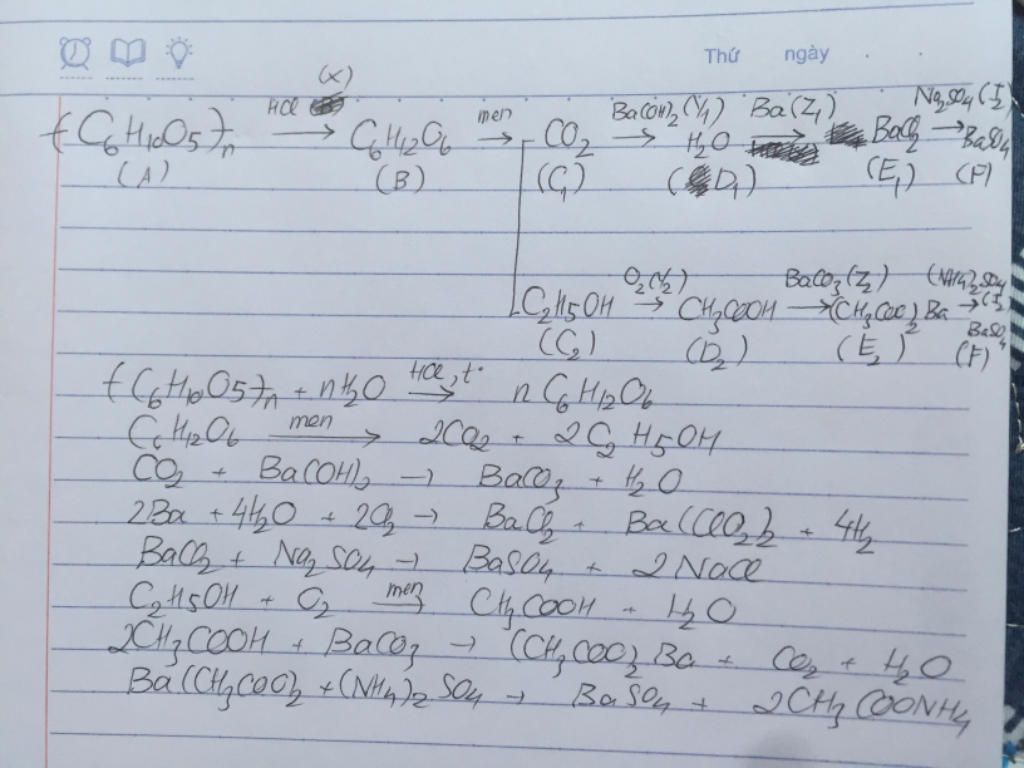 Thứ ngày
(X)
(C6H10O5)n HCl → C6H12O6 men → CO2 Ba(OH)2 (Y1) → H2O Ba (Z1) → BaCl2 Na2SO4 (I2) → BaSO4
(A) (B) (C1) (D1) (E1) (F)
C2H5OH O2 (Y2) → CH3COOH BaCO3 (Z2) → (CH3COO)2Ba (NH4)2SO4 → BaSO4
(C2) (D2) (E2) (F)
(C6H10O5)n + nH2O HCl, t° → n C6H12O6
C6H12O6 men → 2CO2 + 2C2H5OH
CO2 + Ba(OH)2 → BaCO3 + H2O
2Ba + 4H2O + 2Cl2 → BaCl2 + Ba(ClO2)2 + 4H2
BaCl2 + Na2SO4 → BaSO4 + 2NaCl
C2H5OH + O2 men → CH3COOH + H2O
2CH3COOH + BaCO3 → (CH3COO)2Ba + CO2 + H2O
Ba(CH3COO)2 + (NH4)2SO4 → BaSO4 + 2CH3COONH4